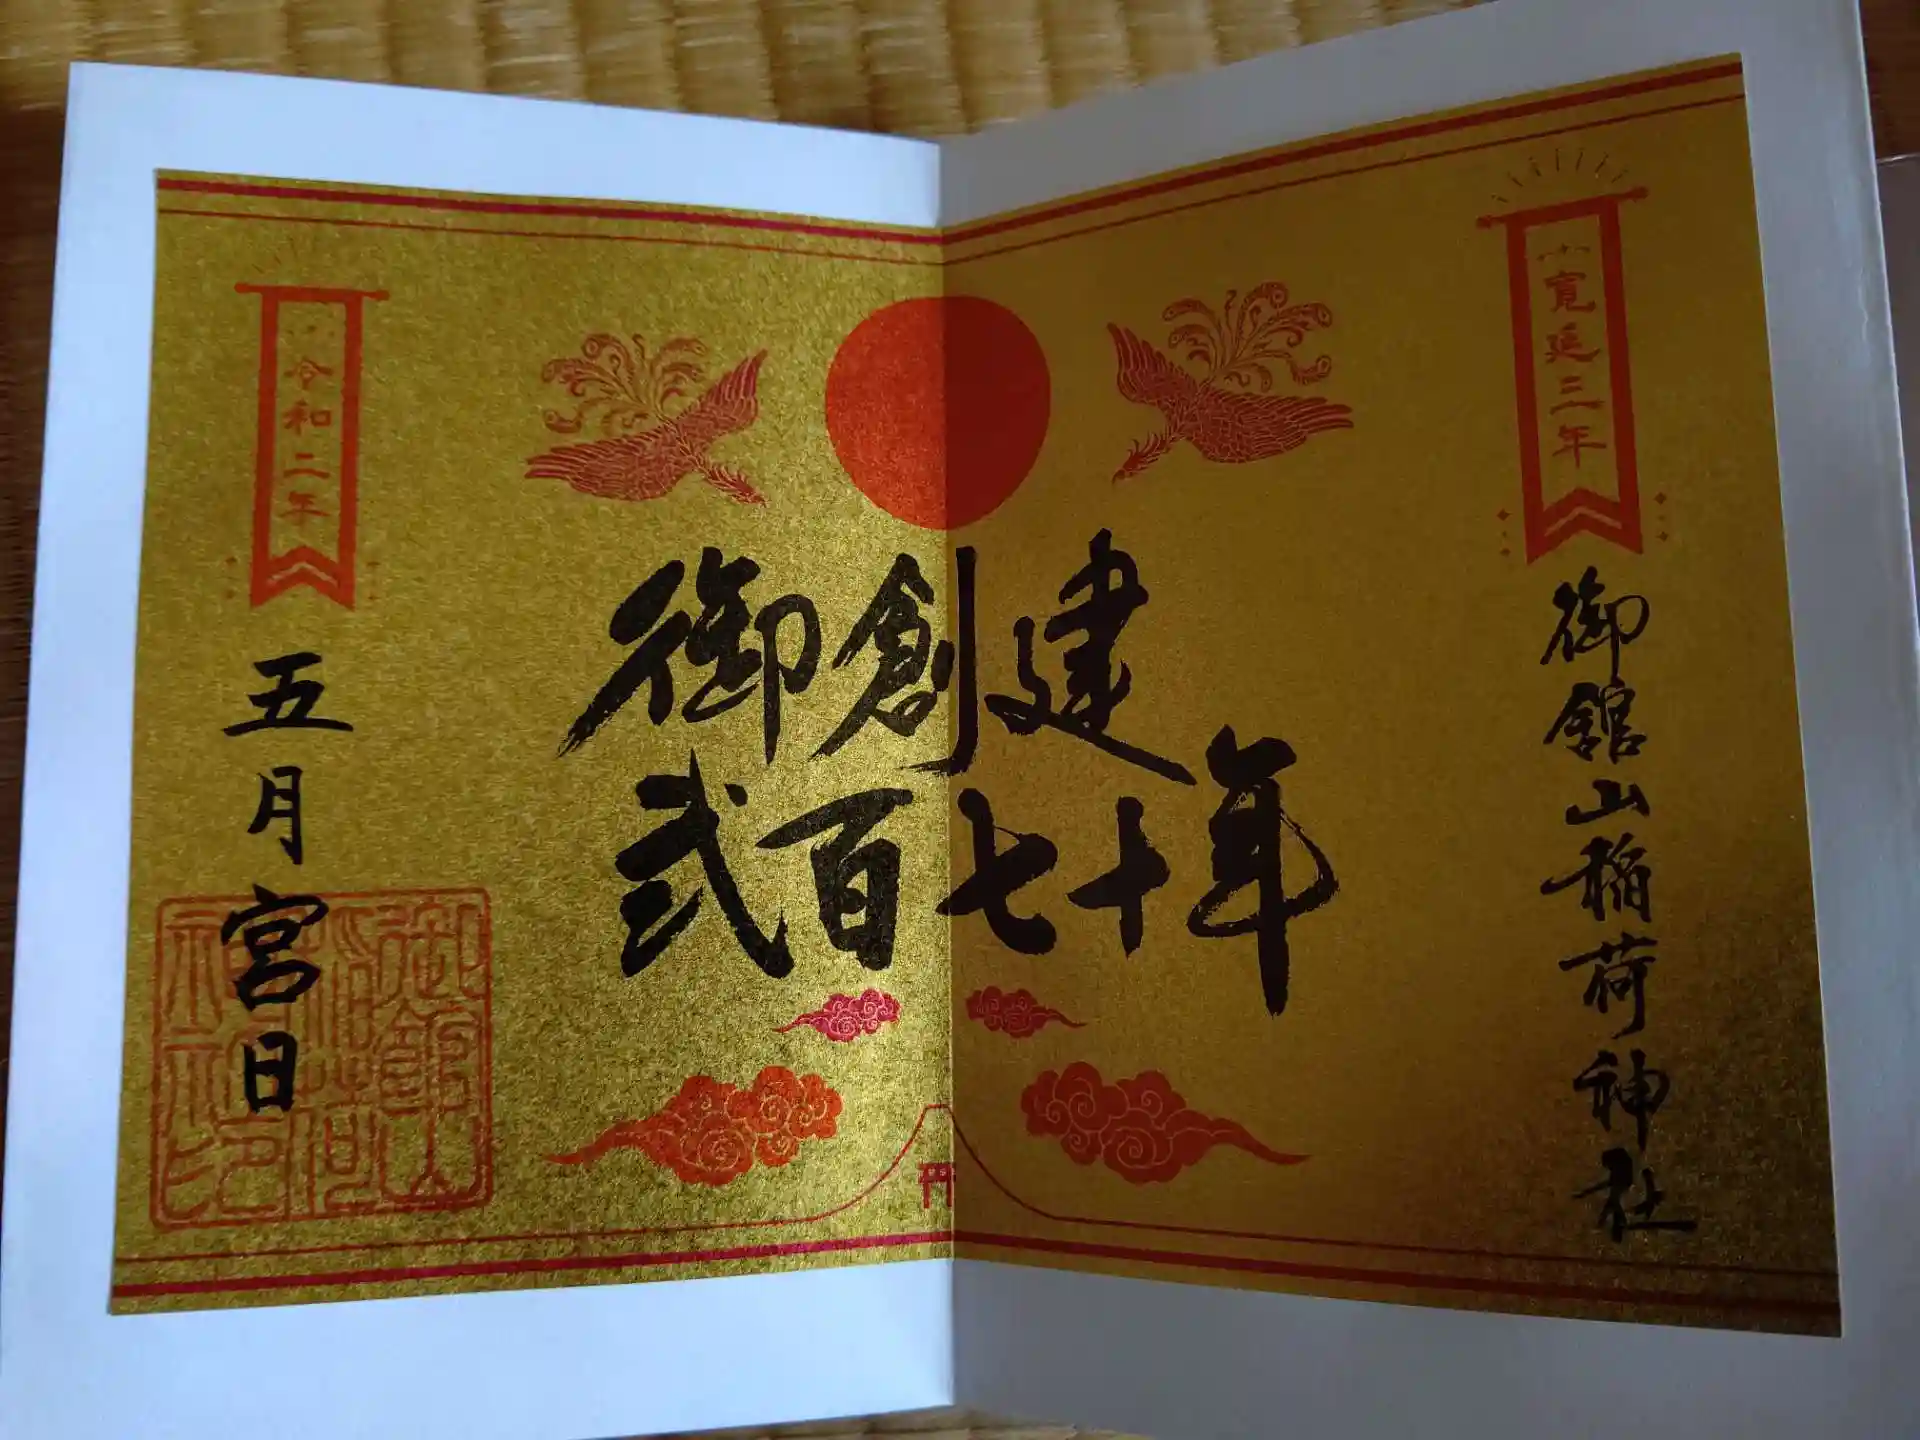 寛延三年
御館山稲荷神社
御創建
弐百七十年
令和二年
五月宮日
御館山
稲荷
神社印